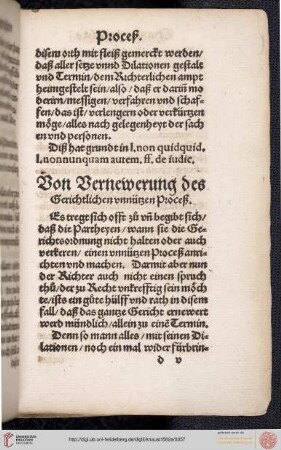 Proceß.
disem orth mit fleiß gemerckt werden/
daß aller setze vnnd Dilationen gestalt
vnd Termin/dem Richterlichen ampt
heimgestelt sein/also/ daß er darin̄ mo
derirn/messigen/verfahren vnd schaf-
fen/das ist/verlengern oder verkürtzen
möge/alles nach gelegenheyt der sach
en vnd personen.
Diß hat grundt in l. non quidquid.
l. nonnunquam autem. ff. de iudic.
Von Vernewerung des
Gerichtlichen vnnützen Proceß.
Es tregt sich offt zů vn̄ begibt sich/
daß die Partheyen/wann sie die Ge-
richtsordnung nicht halten oder auch
verkeren/ einen vnnützen Proceß anri-
chten vnd machen. Darmit aber nun
der Richter auch nicht einen spruch
thü/der zu Recht vnkrefftig sein möch
te/ists ein gůte hülff vnd rath in disem
fall/ daß das gantze Gericht ernewert
werd mündlich/allein zu einē Termin.
Denn so mann alles/mit seinen Di-
lationen/noch ein mal wider fürbrin-
d v